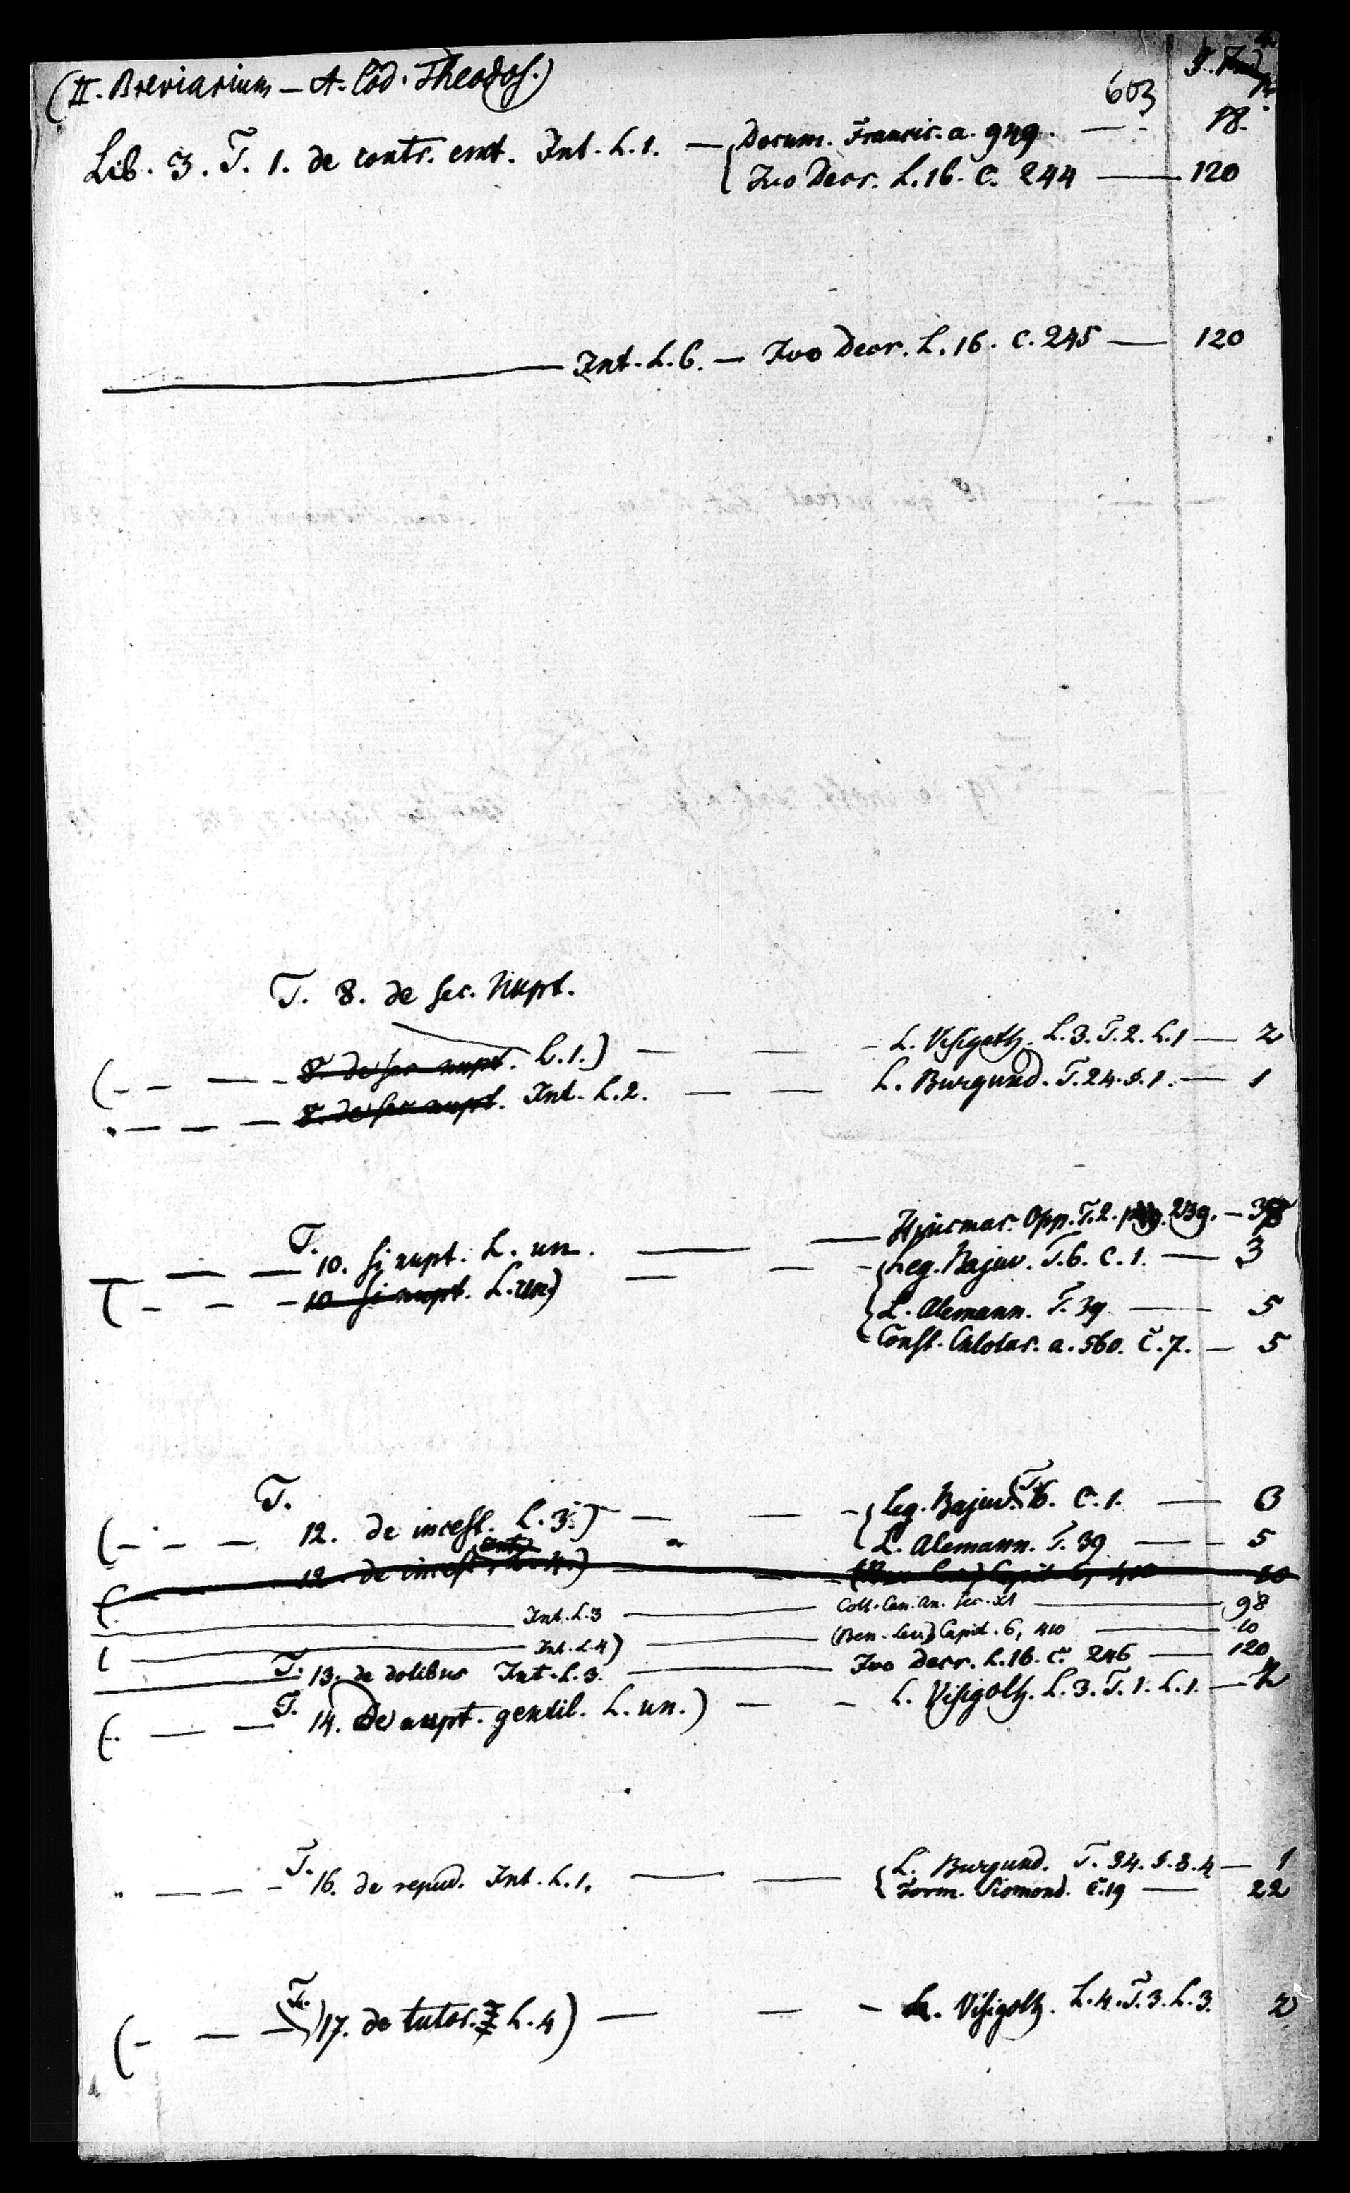 (II. Breviarium — A. Cod. Theodos.)
603
Lib. 3. T. 1. de contr. emt. Int. L. 1. — Docum. Francic. a. 949. — 18.
Ivo Decr. L. 16. C. 244 — 120
Int. L. 6. — Ivo Decr. L. 16. C. 245 — 120
T. 8. de sec. nupt.
(- — — 8. de sec. nupt. L. 1.) — — - L. Visigoth. L. 3. T. 2. L. 1 — 2
- — — 8. de sec. nupt. Int. L. 2. — — L. Burgund. T. 24. §. 1. — 1
— — — T. 10. si nupt. L. un. — — Hincmar. Opp. T. 2. pag. 239. —
(- - - 10 si nupt. L. un.) — — - Leg. Bajuv. T. 6. C. 1. — 3
L. Alemann. T. 39 — 5
Const. Chlotar. a. 560. C. 7. — 5
T.
(- — — 12. de incest. L. 3.) — — - Leg. Bajuv. T. 6. C. 1. — 3
L. Alemann. T. 39 — — 5
(- 12. de incest. Int. L. 4.) — (Ben. Lev.) Capit. 6, 410 10
Int. L. 3 — Coll. Can. An. sec. XI — 98
( — Int. L. 4) — (Ben. Lev.) Capit. 6, 410 — 10
T. 13. de dotibus Int. L. 3. — Ivo Decr. L. 16. C. 246 — 120
(- — — T. 14. de nupt. gentil. L. un.) — - L. Visigoth. L. 3. T. 1. L. 1. — 2
- — - - T. 16. de repud. Int. L. 1. — — L. Burgund. T. 34. §. 3. 4 — 1
Form. Sirmond. C. 19 — 22
(- — — (T.) 17. de tutor. L. 4) — — - L. Visigoth. L. 4. T. 3. L. 3. 2